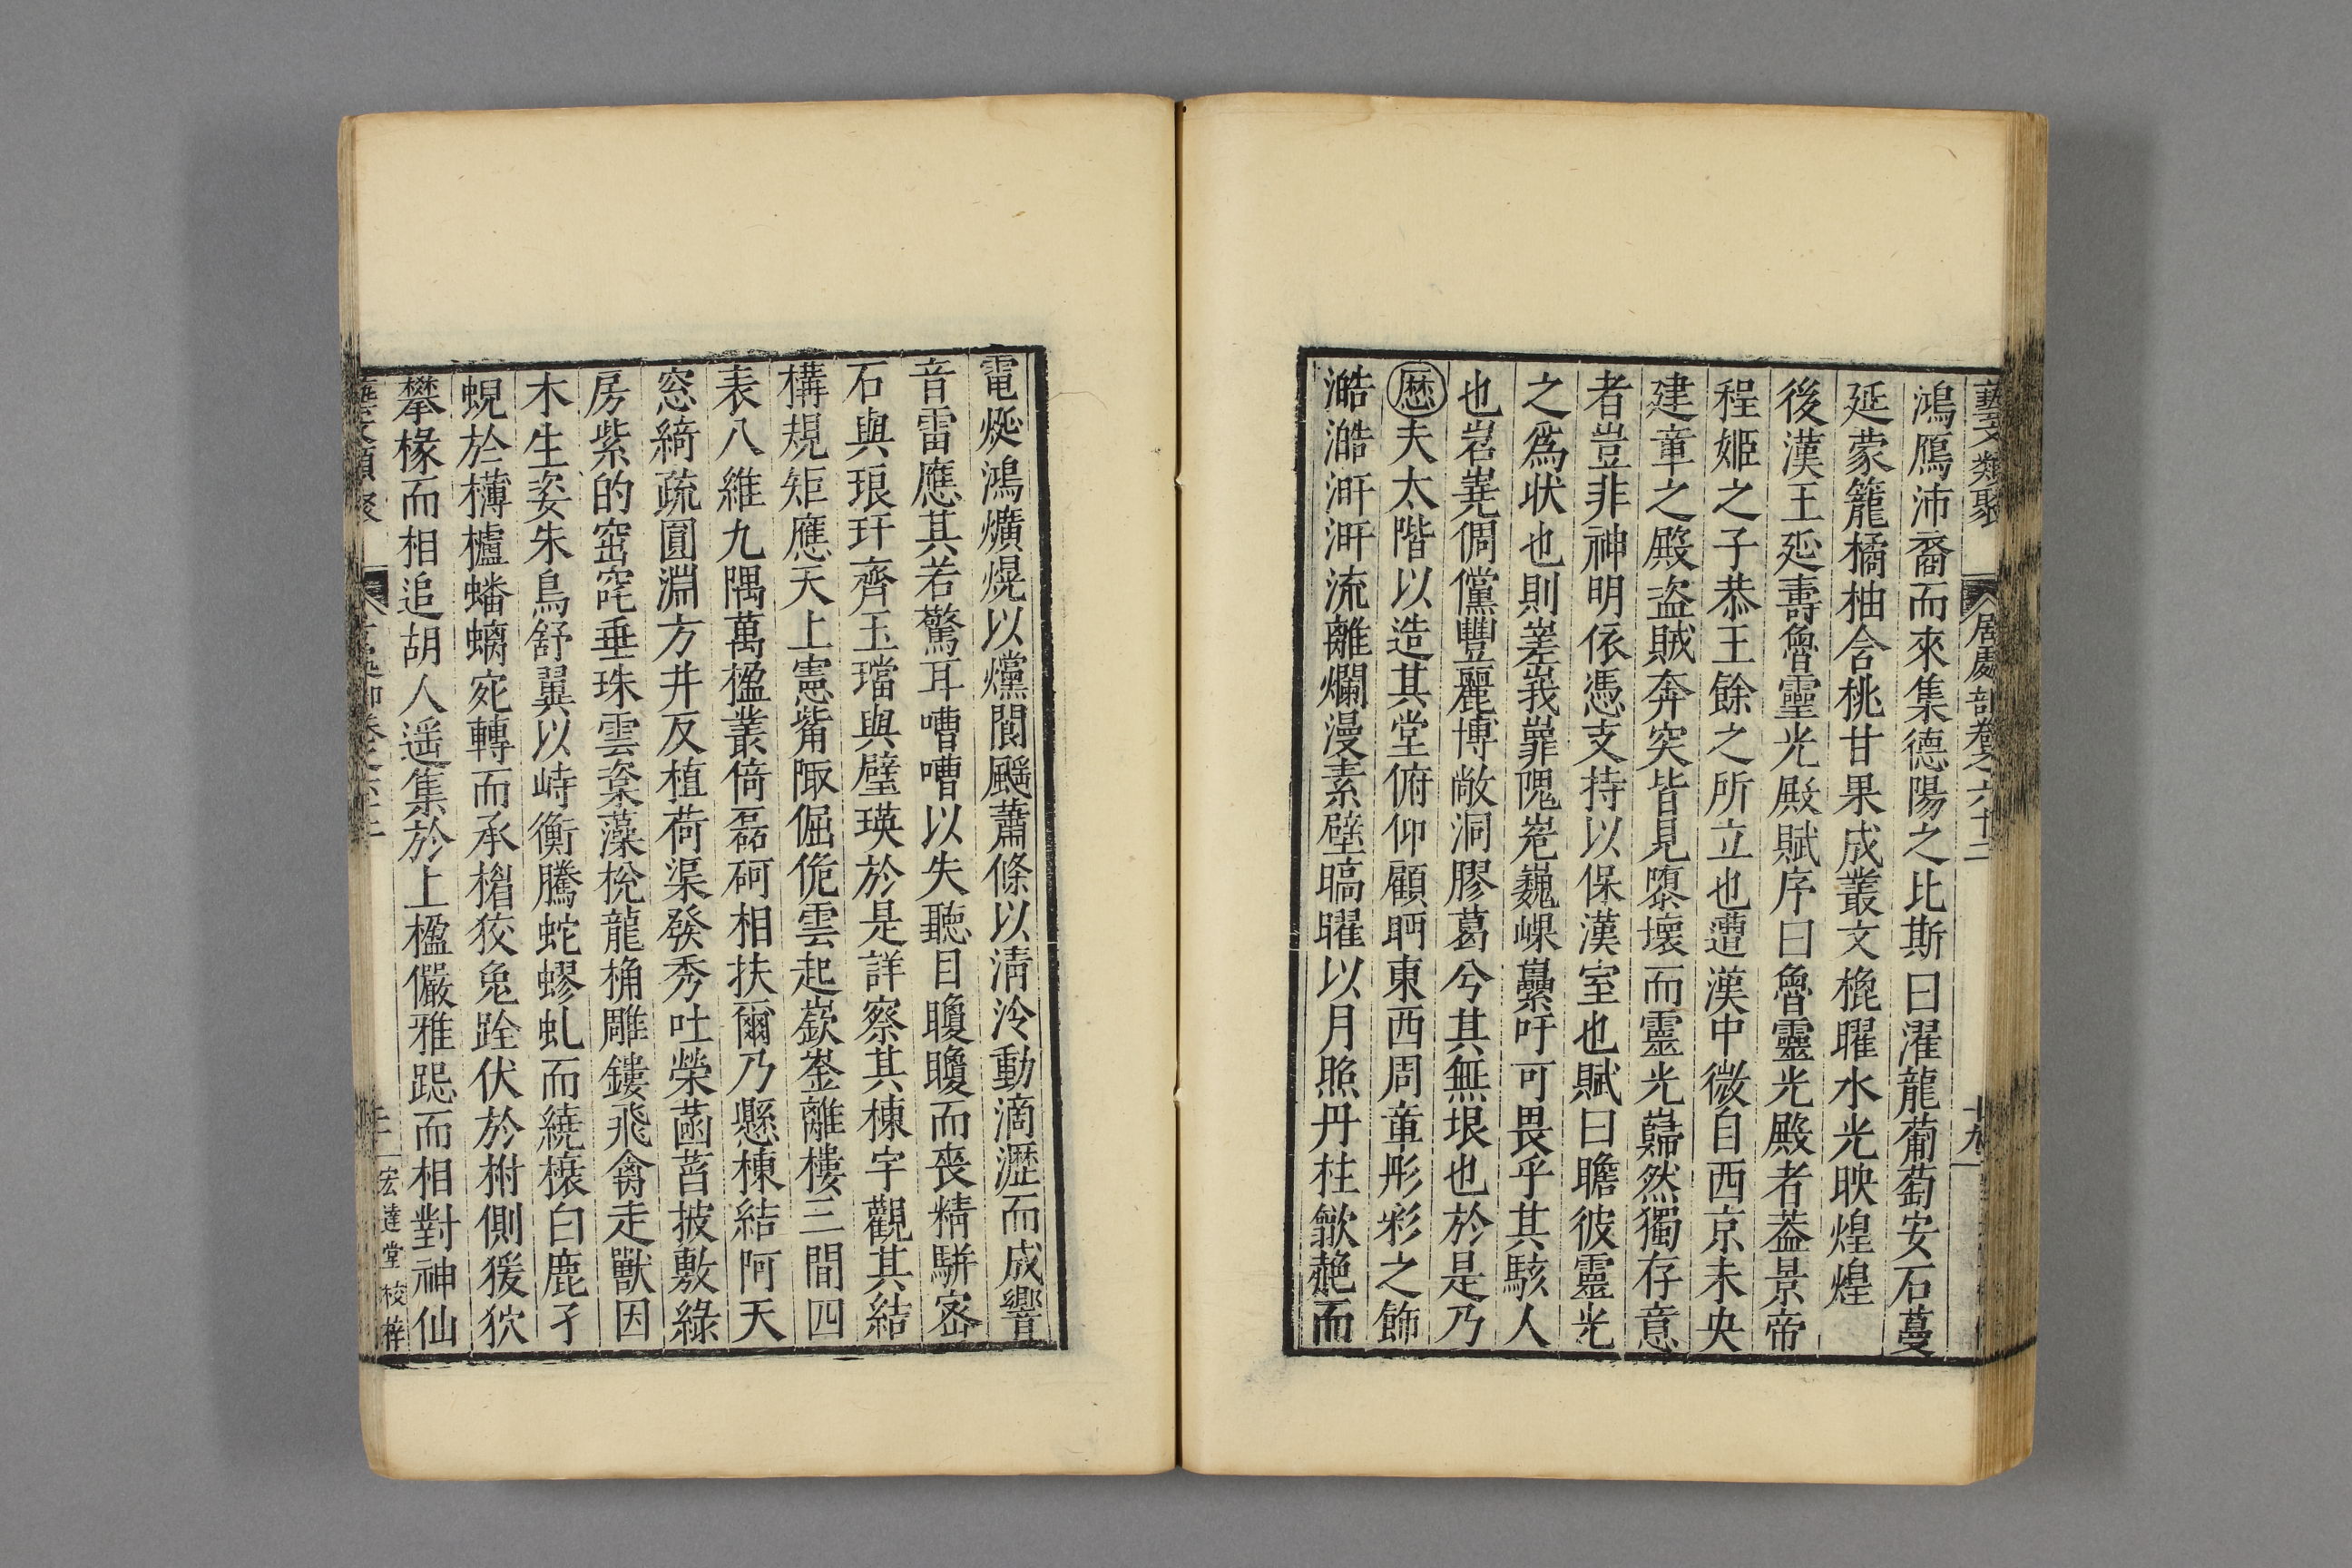 藝文類聚 居處部卷之六十二 十九
鴻鴈沛裔而來集德陽之比斯曰濯龍葡萄安石蔓
延蒙籠橘柚含桃甘果成叢文櫋曜水光映煌煌
後漢王延壽魯靈光殿賦序曰魯靈光殿者葢景帝
程姬之子恭王餘之所立也遭漢中微自西京未央
建章之殿盗賊奔突皆見隳壞而靈光巋然獨存意
者豈非神明依憑支持以保漢室也賦曰瞻彼靈光
之爲状也則嵳峩嶵隗峞巍㠥巒吁可畏乎其駭人
也岧嶤倜儻豐麗博敞洞膠葛兮其無垠也於是乃
歷夫太階以造其堂俯仰顧眄東西周章彤彩之飾
澔澔涆涆流離爛漫素壁暠曜以月照丹柱歙赩而
電烻鴻爌熀以爣閬飂蕭條以淸泠動滴瀝而成響
音雷應其若驚耳嘈嘈以失聽目矎矎而喪精駢宻
石與琅玕齊玉璫與璧瑛於是詳察其棟宇觀其結
構規矩應天上憲觜陬倔佹雲起嶔崟離樓三間四
表八維九隅萬楹叢倚磊砢相扶爾乃懸棟結阿天
窓綺疏圓淵方井反植荷渠發秀吐榮菡萏披敷綠
房紫的窋窀垂珠雲楶藻梲龍桷雕鏤飛禽走獸因
木生姿朱鳥舒翼以峙衡騰蛇蟉虬而繞榱白鹿孑
蜺於欂櫨蟠螭宛轉而承楣狡兔跧伏於柎側猨狖
攀椽而相追胡人遥集於上楹儼雅跽而相對神仙
宏達堂校梓